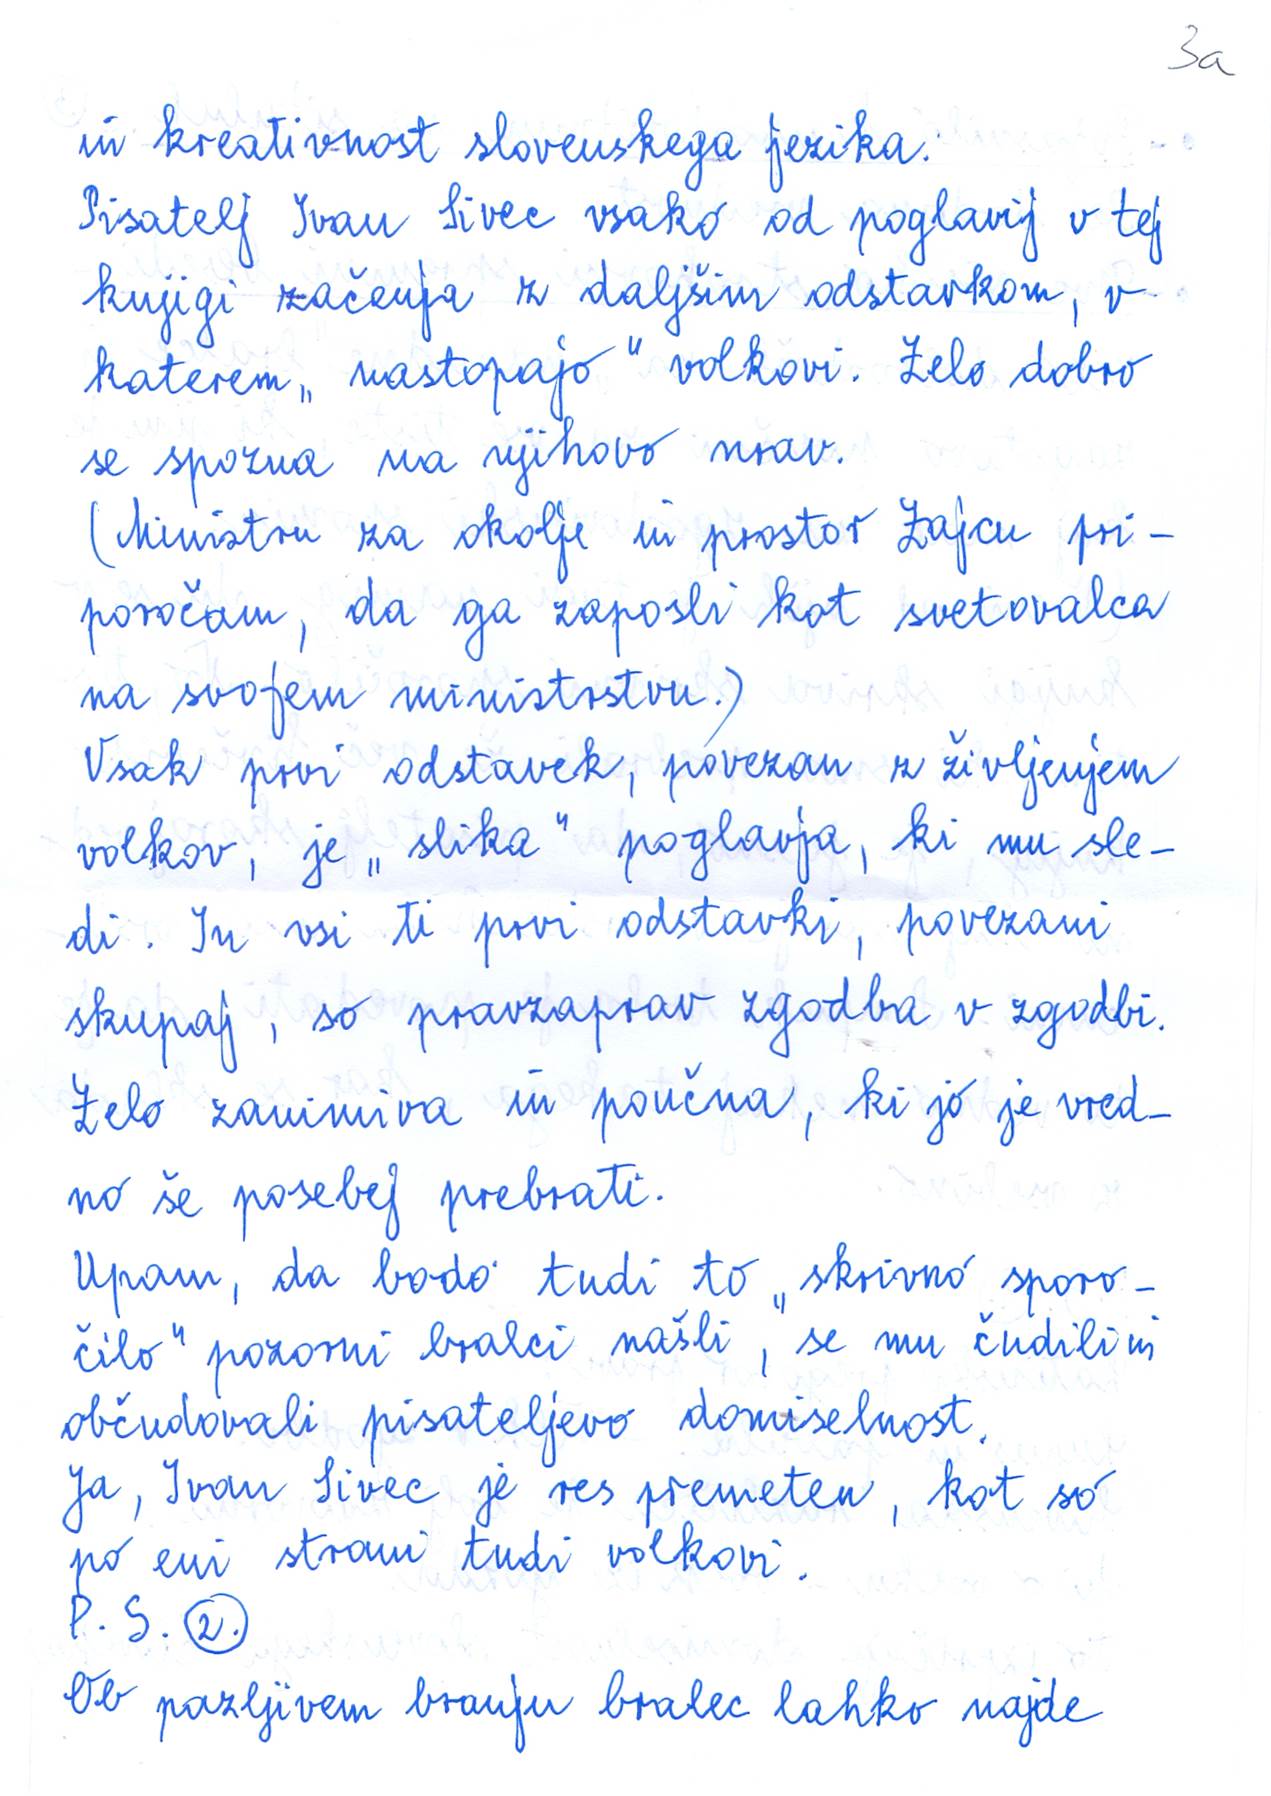 3a
in kreativnost slovenskega jezika.
Pisatelj Ivan Sivec vsako od poglavij v tej
knjigi začenja z daljšim odstavkom, v
katerem „nastopajo“ volkovi. Zelo dobro
se spozna na njihovo nrav.
(Ministru za okolje in prostor Zajcu pri-
poročam, da ga zaposli kot svetovalca
na svojem ministrstvu.)
Vsak prvi odstavek, povezan z življenjem
volkov, je „slika“ poglavja, ki mu sle-
di. In vsi ti prvi odstavki, povezani
skupaj, so pravzaprav zgodba v zgodbi.
Zelo zanimiva in poučna, ki jo je vred-
no še posebej prebrati.
Upam, da bodo tudi to „skrivno sporo-
čilo“ pozorni bralci našli, se mu čudili in
občudovali pisateljevo domiselnost.
Ja, Ivan Sivec je res premeten, kot so
po eni strani tudi volkovi.
P. S. 2.
Ob pazljivem branju bralec lahko najde